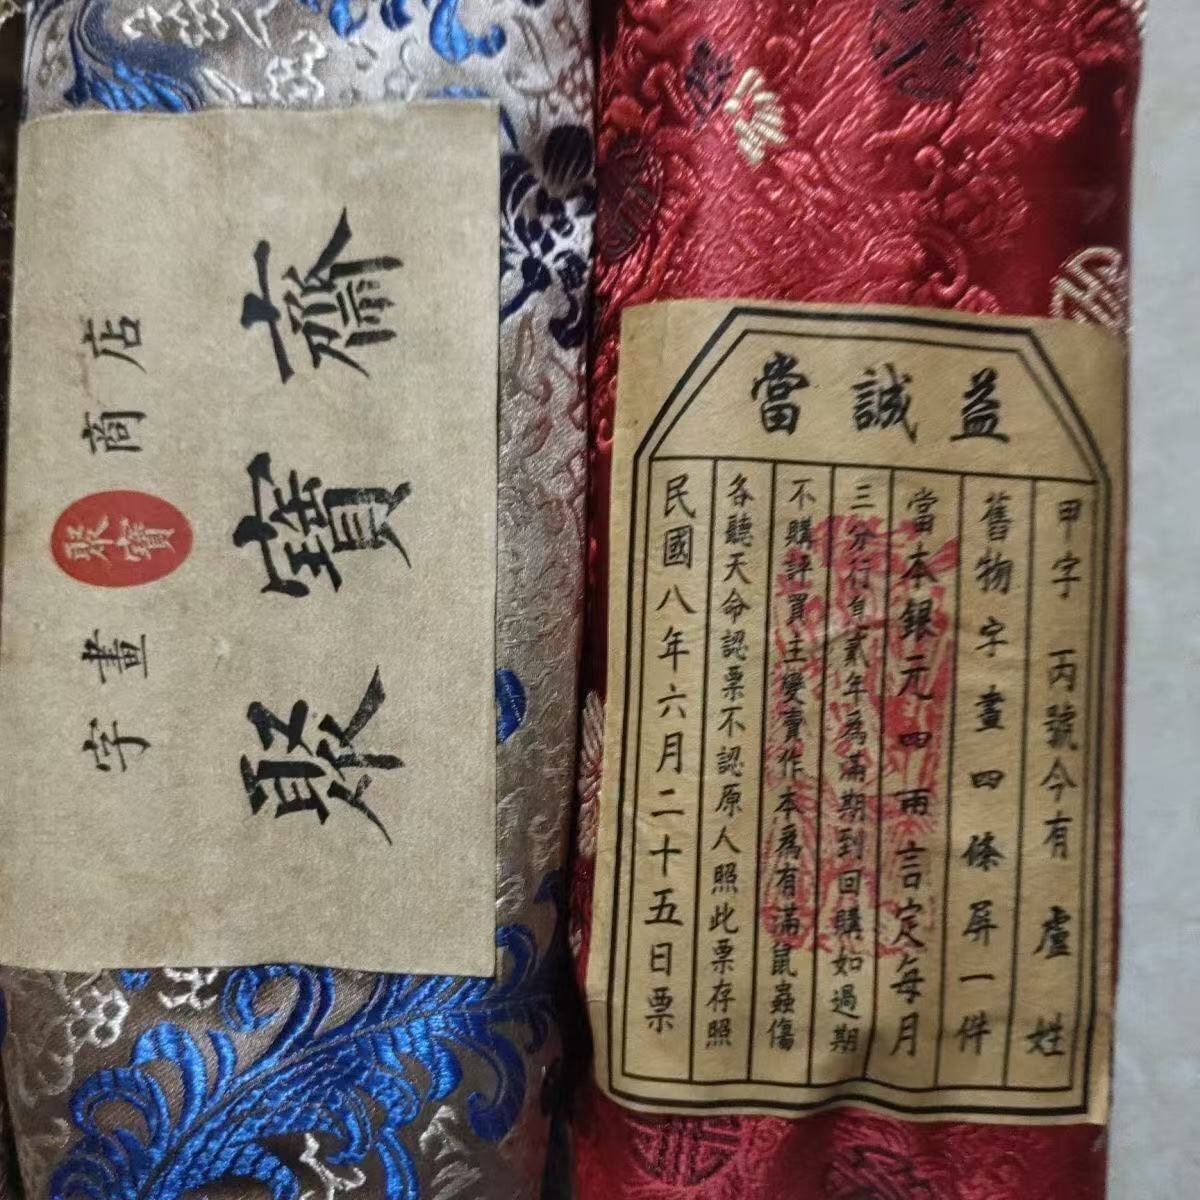 聚寶齋
字畫
聚寶
商店
益誠當
甲字 丙號今有 盧 姓
舊物字畫四條屏一件
當本銀元四兩言定每月
三分行息貳年為滿期到回購如過期
不購評買主變賣作本為有滿鼠蟲傷
各聽天命認票不認原人照此票存照
民國八年六月二十五日票